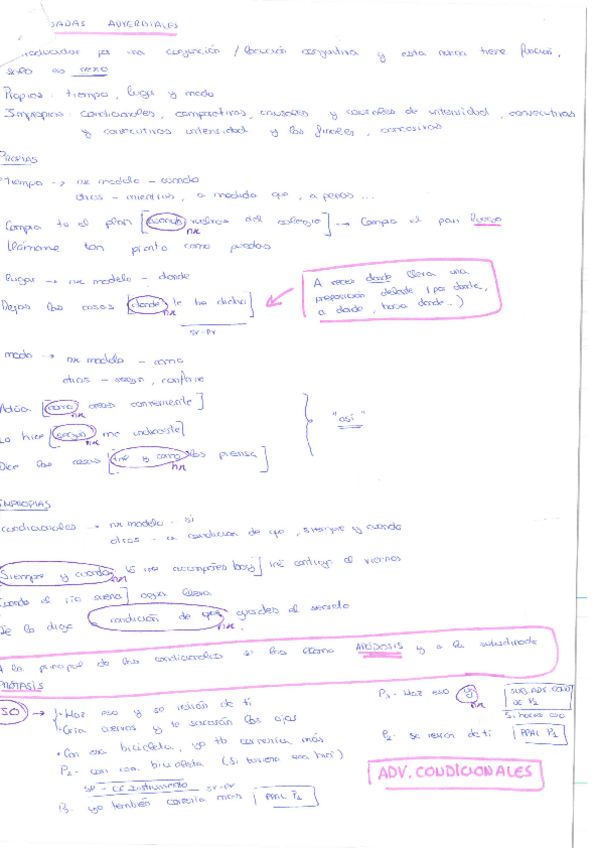 ADAS ADVERBIALES
por una conjunción / locución conjuntiva y esta nunca tiene función,
solo es nexo
Propias: tiempo, lugar y modo
Impropias: condicionales, comparativas, causales y causales de intensidad, consecutivas
y consecutivas intensidad y las finales, concesivas
PROPIAS
Tiempo → nx modelo - cuando
otros - mientras, a medida que, apenas ...
Compra tú el pan [cuando vuelvas del colegio] → Compra el pan luego
nx
Llámame tan pronto como puedas
Lugar → nx modelo - donde
Dejas las cosas [donde te he dicho]
nx
SV-PV
A veces donde lleva una
preposición delante (por donde,
a donde, hacia donde...)
modo → nx modelo - como
otros - según, conforme
Actúa [como creas conveniente]
nx
Lo hice [según me indicaste]
nx
"así"
Dice las cosas [tal y como las piensa]
nx
IMPROPIAS
condicionales → nx modelo - si
otros - a condición de que, siempre y cuando
Siempre y cuando me acompañes hoy] iré contigo el viernes
nx
Cuando el río suena] agua lleva
Te lo digo a condición de que guardes el secreto
nx
A la principal de las condicionales se la llama APÓDOSIS y a la subordinada
PRÓTASIS
SO → · Haz eso y se reirán de ti
· Cría cuervos y te sacarán los ojos
· Con esa bicicleta, yo tb correría más
P2- con esa bicicleta (si tuviera esa bici)
SP - CC Instrumento SV-PV
P1- yo también correría más PPAL P2
P1- Haz eso y
nx
SUB. ADV. COND
DE P2
Si haces eso
P2- se reirán de ti PPAL P1
ADV. CONDICIONALES